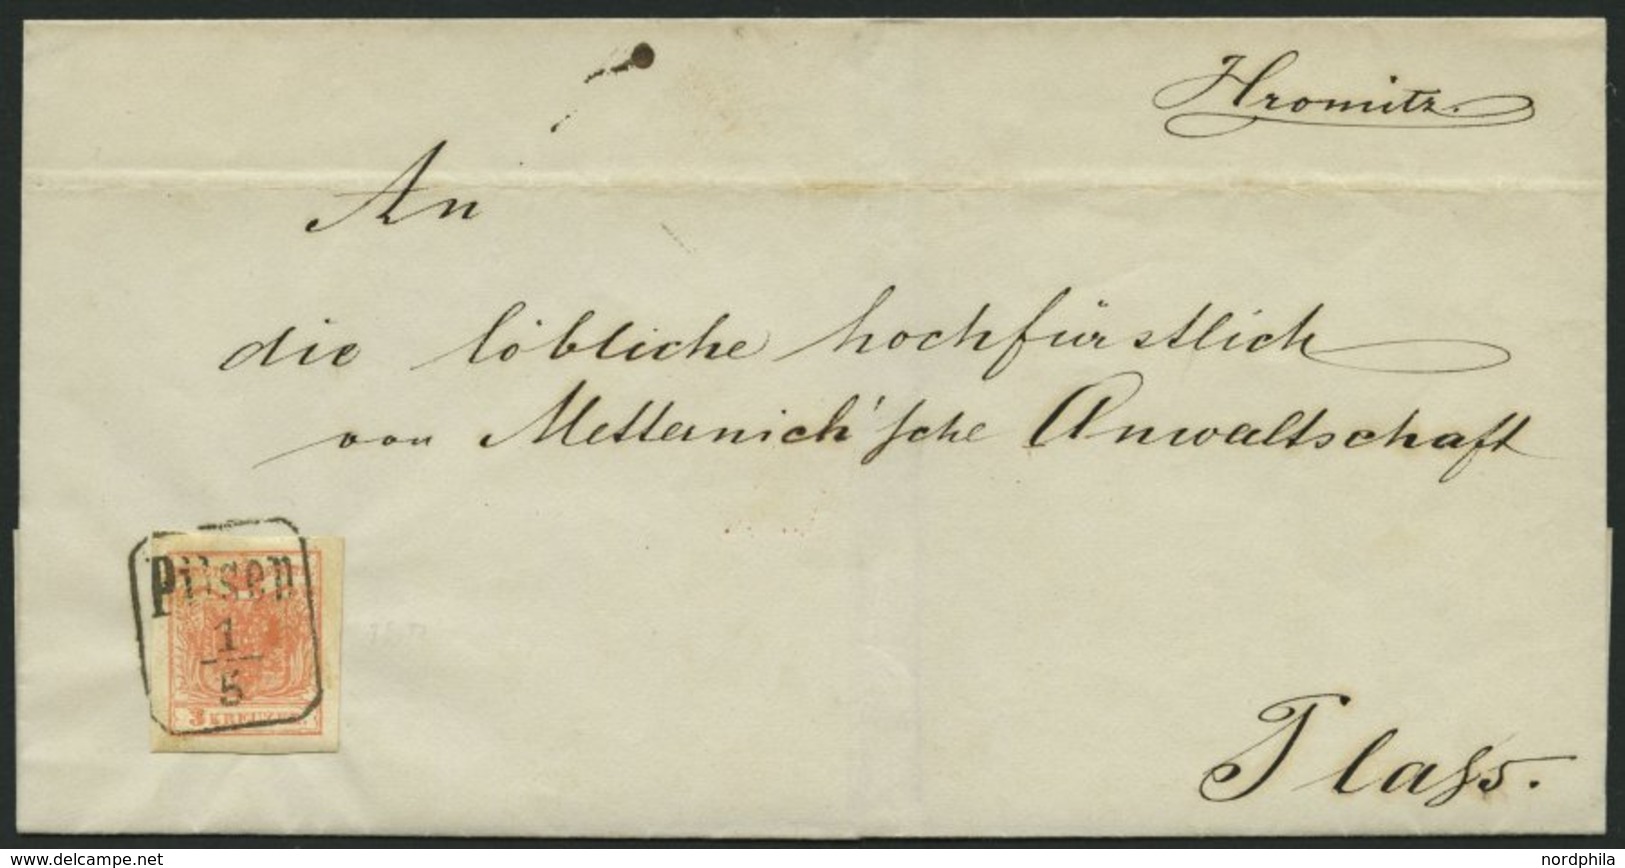 Hromitz.
An
die löbliche hochfürstlich
von Metternich'sche Anwaltschaft
Pilsen
1
5
3 KREUZER.
Plass.
www.delcampe.net
nordphila